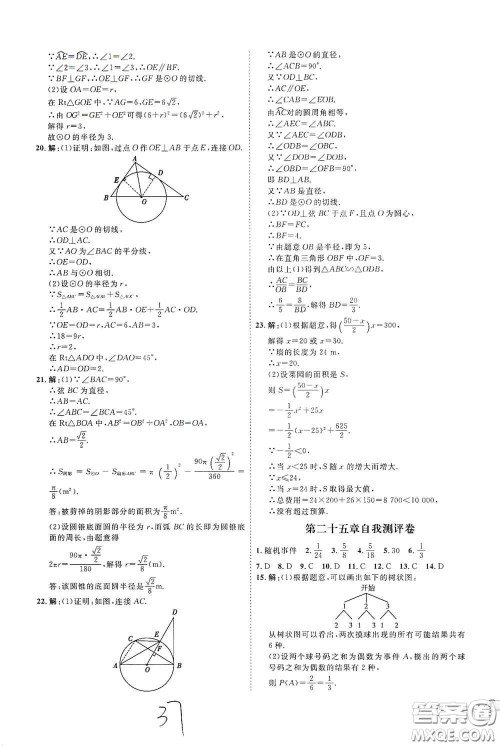 ∵A͡E=D͡E,∴∠1=∠2.
∵∠2=∠3,∴∠1=∠3,∴OE∥BF.
∵BF⊥GF,∴OE⊥GF,∴GF是⊙O的切线.
(2)设OA=OE=r.
在Rt△GOE中,∵AG=6,GE=6√2,
∴由OG²=GE²+OE²可得(6+r)²=(6√2)²+r²,
解得r=3.
故⊙O的半径为3.
20.解:(1)证明:如图,过点O作OE⊥AB于点E,连接OD.
A
E
D
B
O
C
∵AC是⊙O的切线,
∴OD⊥AC.
又∵AO是∠BAC的平分线,
∴OE=OD.
∴AB是⊙O的切线.
(2)设⊙O的半径为r.
∵S△ABC=S△AOB+S△AOC,
∴1/2AB·AC=1/2AB·r+1/2AC·r.
∴18=9r.
∴r=2.
在Rt△ADO中,∠DAO=45°.
∴AD=OD=2.
21.解:(1)∵∠BAC=90°,
∴弦BC为直径,
∴AB=AC.
∴∠ABC=∠BCA=45°.
在Rt△BOA中,OB²+OA²=AB²,
∴AB=√2/2.
π/8(m²).
答:被剪掉的阴影部分的面积为π/8 m².
(2)设圆锥底面圆的半径为r,而弧BC的长即为圆锥底面的周长,
答:该圆锥的底面圆半径是√2/8 m.
22.解:(1)证明:如图,连接AC.
D
C
E
F
A
O
B
37
∵AB是⊙O的直径,
∴∠ACB=90°.
又∵OD⊥BC,
∴AC∥OE,
∴∠CAB=∠EOB.
由A͡C对的圆周角相等,
∴∠AEC=∠ABC.
又∵∠AEC=∠ODB,
∴∠ABC=∠ODB,
∴∠OBD=90°.
即直线BD与⊙O相切.
(2)∵OD⊥弦BC于点F,且点O为圆心,
∴BF=FC.
∴BF=4.
∵由题意OB是半径,即为5,
∴在直角三角形OBF中,OF=3.
由以上(1)得到△ABC∽△ODB,
∴AC/OB=BC/BD,
∴6/5=8/BD,解得BD=20/3.
23.解:(1)根据题意,得((50-x)/2)x=300,
解得x=20或x=30.
∵墙的长度为24 m,
∴x=20.
(2)设菜园的面积是S,
则S=((50-x)/2)x
=-1/2x²+25x
=-1/2(x-25)²+625/2.
∵-1/2<0,
∴当x<25时,S随x的增大而增大.
∵x≤24,
∴当x=24时,S取得最大值,
∴总费用=24×200+26×150=8 700<10 000,
∴没有超过预算.
第二十五章自我测评卷
1.随机事件 2.1/24 3.5/8 4.5/18 5.30 6.1/3
7.D 8.D 9.C 10.D 11.C 12.D 13.C 14.D
15.解:(1)根据题意,可以画出如下的树状图:
开始
1 2 3
2 3 1 3 1 2
从树状图可以看出,两次摸球出现的所有可能结果共有
6种.
(2)设两个球号码之和为偶数的事件为A,摸出的两个球
号码之和为偶数的结果有2种,
则P(A)=2/6=1/3.
答案圈
MXQE.COM